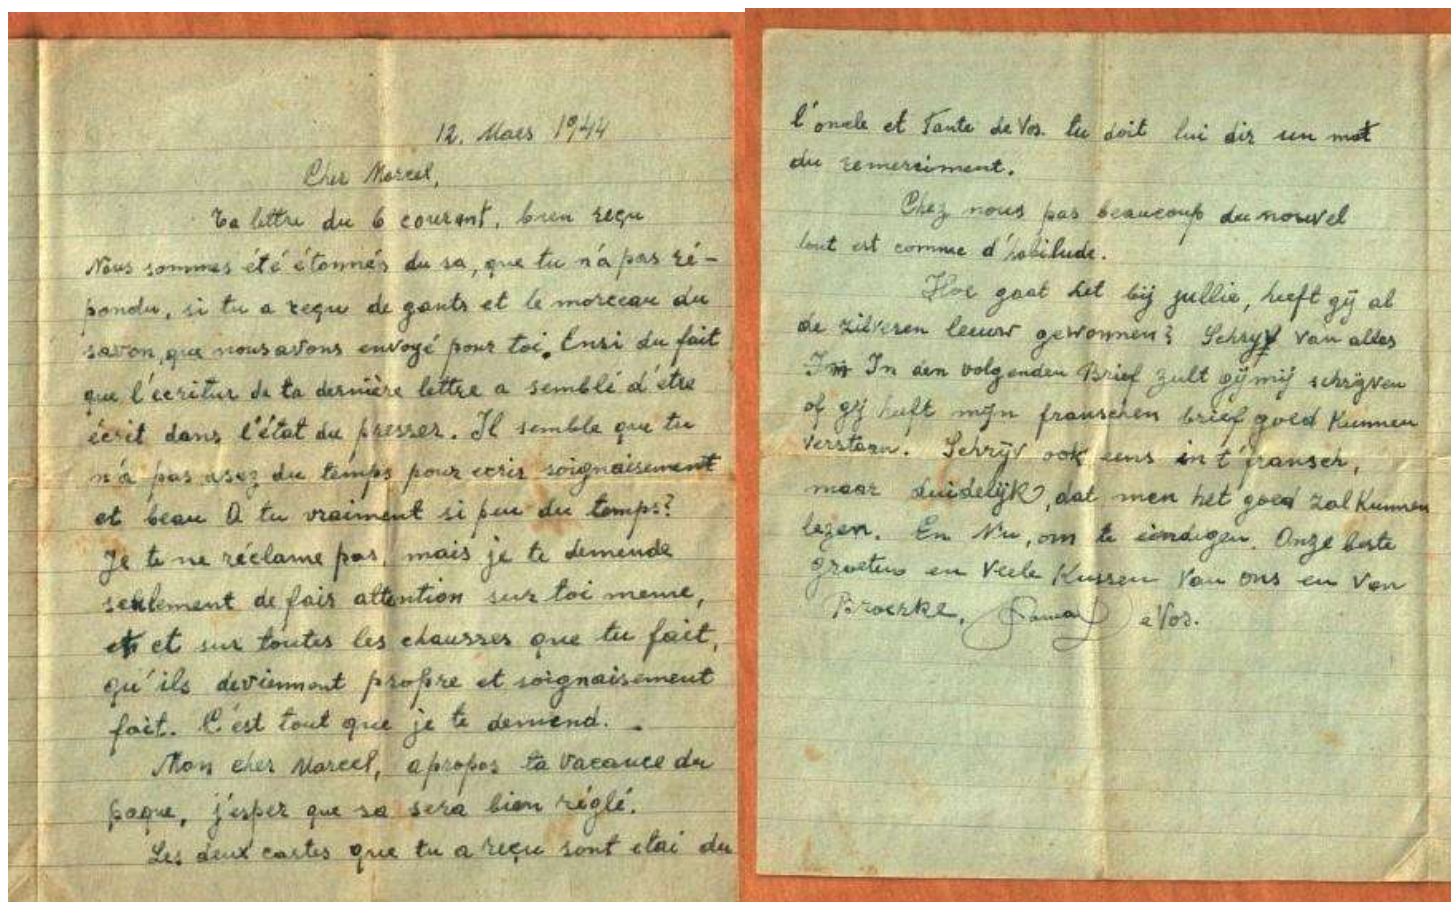 12. Mars 1944
Cher Marcel,
Ta lettre du 6 courant, bien reçu
Nous sommes été étonnés du sa, que tu n'á pas ré-
pondu, si tu a reçu de gants et le morceau du
savon, que nous avons envoyé pour toi. Ensi du fait
que l'écritur de ta dernière lettre a semblé d'étre
écrit dans l'état du presser. Il semble que tu
n'a pas asez du temps pour ecris soignaisement
et beau A tu vraiment si peu du temps?
Je te ne réclame pas, mais je te demende
seulement de fair attention sur toi meme,
et sur toutes les chausses que tu fait,
qu'ils deviennent propre et soignaisement
fait. C'est tout que je te demend.
Mon cher Marcel, apropos ta vacance du
paque, j'esper que sa sera bien réglé.
Les deux cartes que tu a reçu sont etai du
l'oncle et Tante de Vos. tu doit lui dir un mot
du remerciment.
Chez nous pas beaucoup du nouvel
tout est comme d'habitude.
Hoe gaat het bij jullie, heeft gij al
de zilveren leeuw gewonnen? Schryf van alles
In den volgenden Brief zult gij mij schrijven
of gij heeft mijn franschen brief goed Kunnen
verstaan. Schrijv ook eens in t'fransch,
maar duidelijk, dat men het goed zal Kunnen
lezen. En Nu, om te eindigen. Onze beste
groeten en Veele Kussen Van ons en Van
Broerke. e Vos.